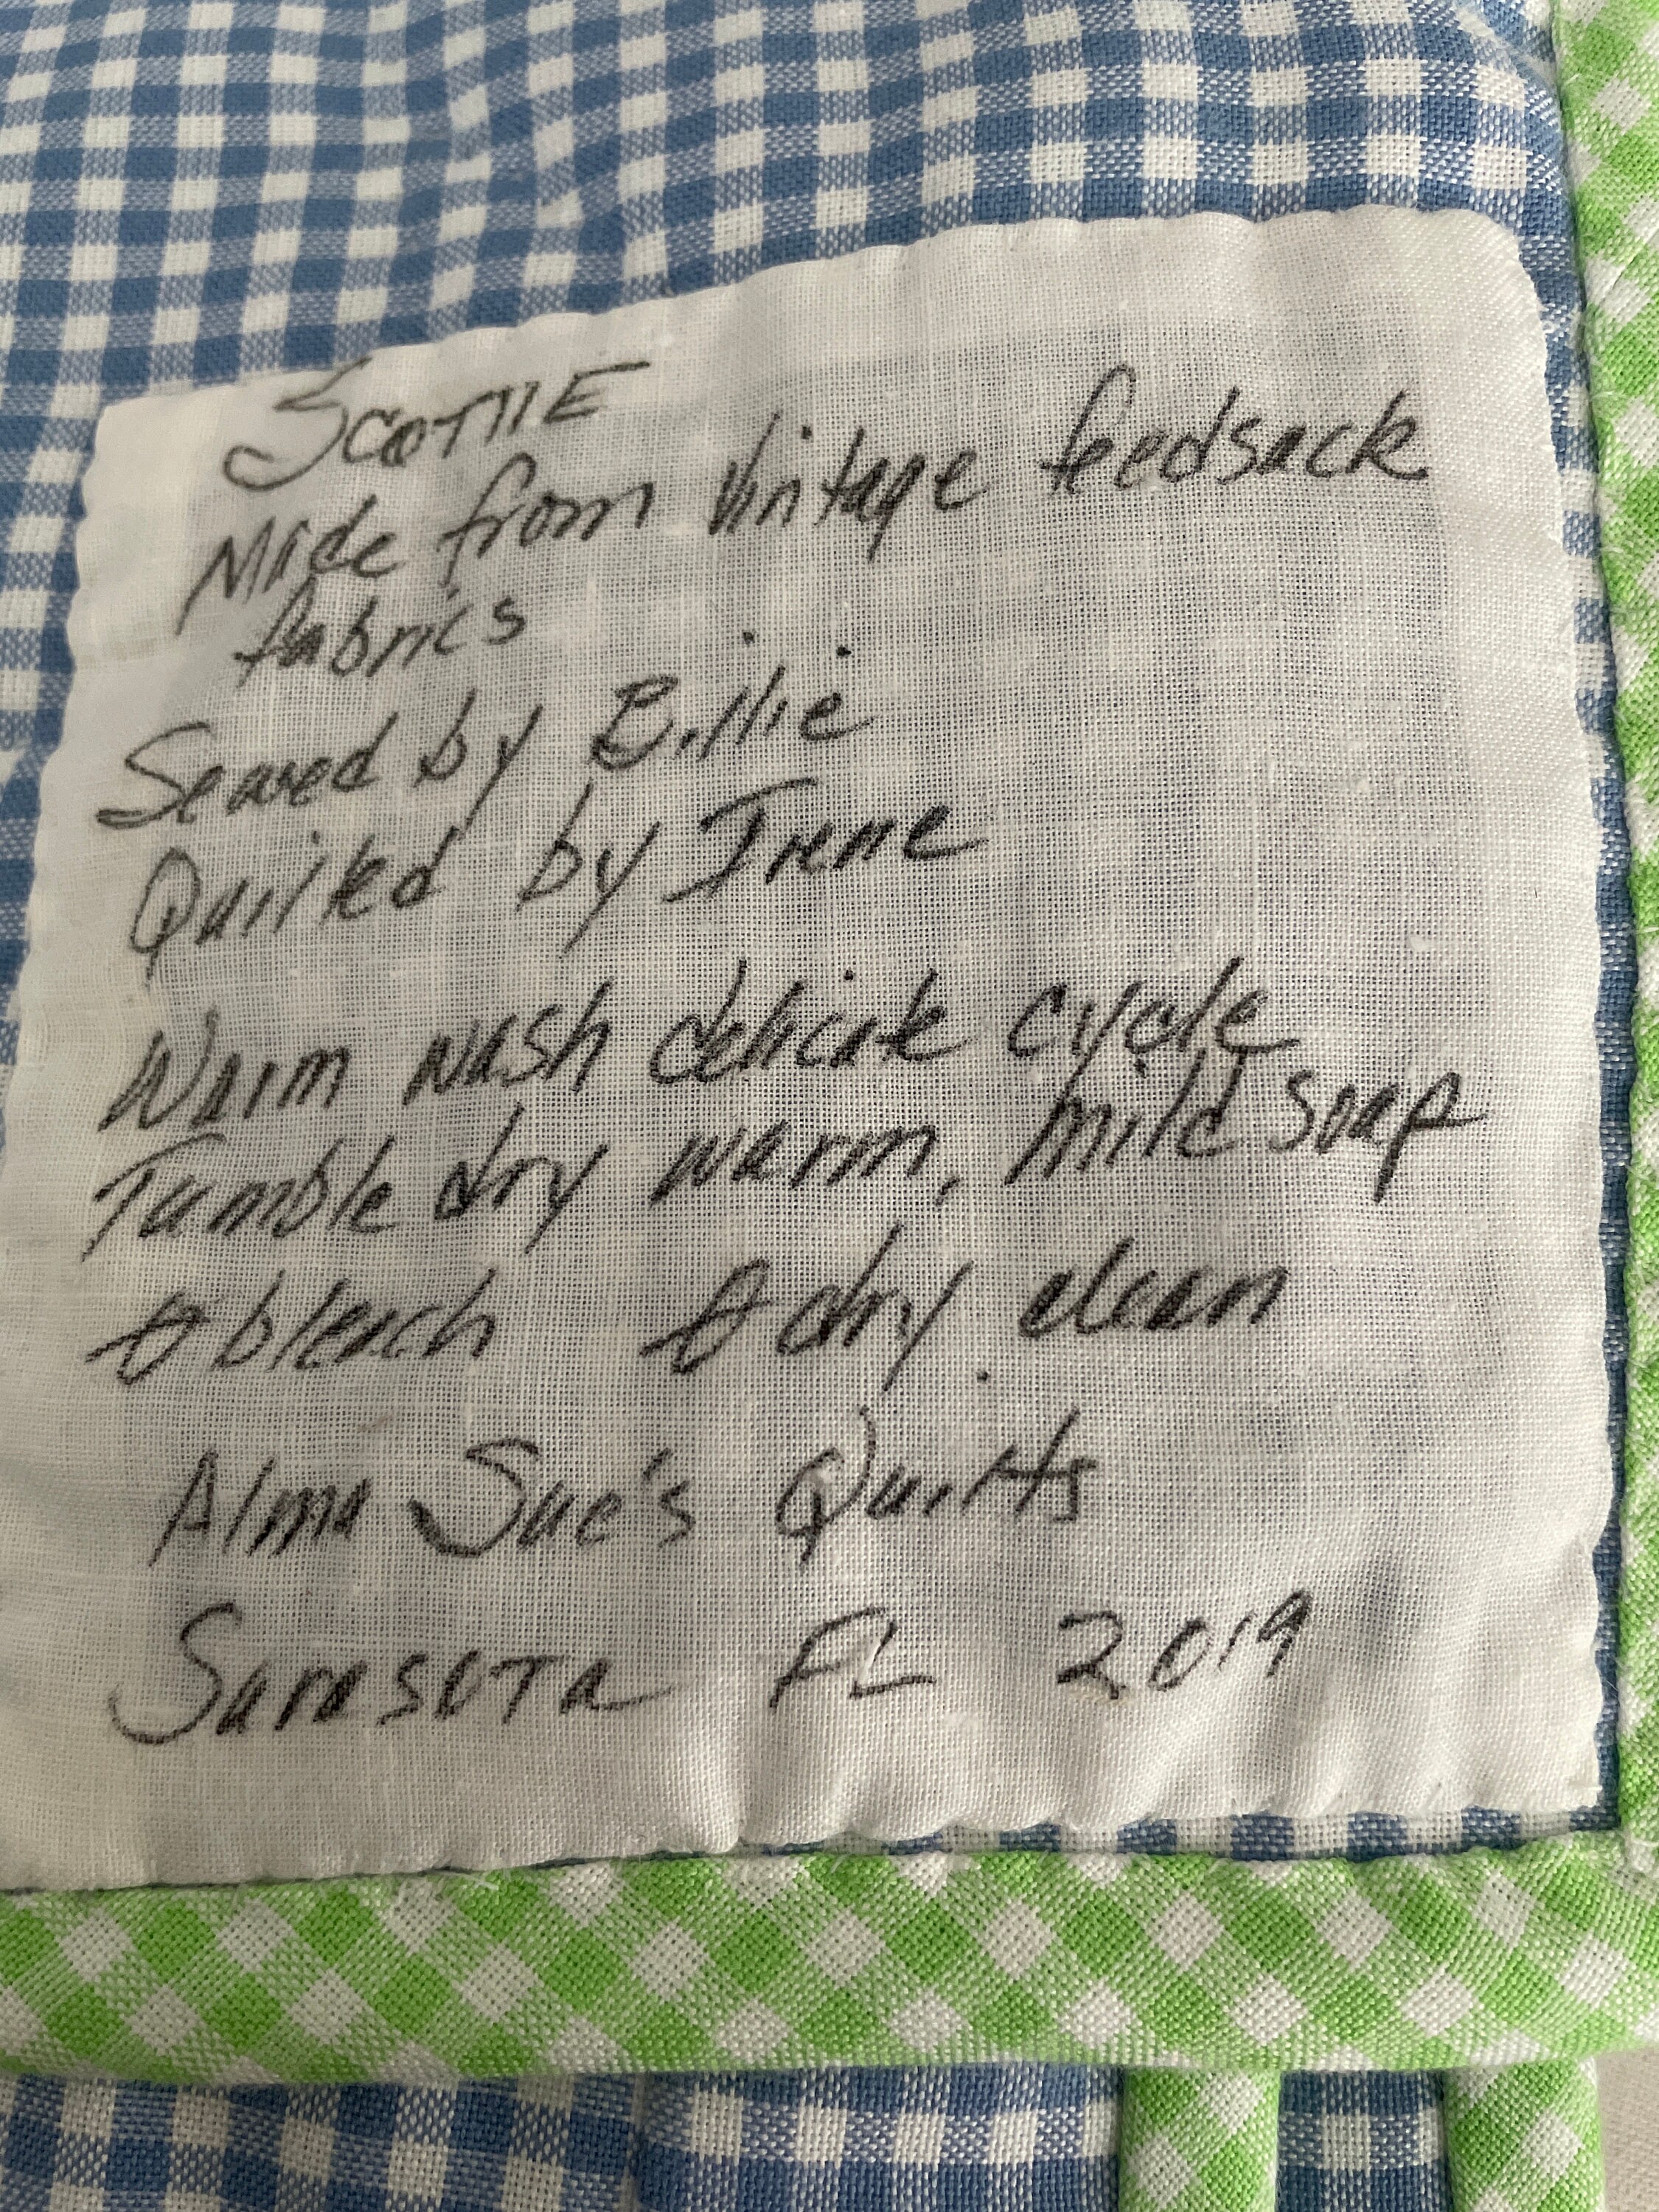 SCOTTIE
Made from vintage feedsack
fabrics
Seawed by Billie
Quilted by Irene
Warm wash delicate cycle
Tumble dry warm, mild soap
Ø bleach Ø dry clean
Alma Sue's Quilts
Sarasota FL 2019